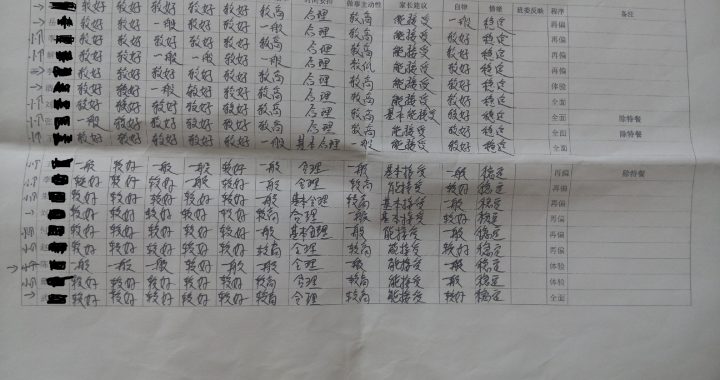 时间安排 做事主动性 家长建议 自律 情绪 班委反映 程序 备注
较好 较好 较好 较好 较好 较高 合理 较高 能接受 一般 稳定 再偏
较好 较好 一般 较好 较好 一般 合理 较高 能接受 较好 稳定 再偏
较好 较好 较好 较好 较好 较高 合理 较高 能接受 较好 稳定 再偏
较好 较好 一般 一般 较好 一般 合理 较低 能接受 较好 稳定 再偏
较好 较好 较好 较好 较好 较高 合理 较高 能接受 较好 稳定 体验
较好 较好 一般 较好 较好 较高 合理 较高 能接受 较好 稳定 全面
较好 较好 较好 较好 较好 较高 合理 较高 基本能接受 较好 稳定 全面 除特餐
一般 较好 较好 较好 较好 较高 合理 较高 能接受 较好 稳定 全面 除特餐
较好 较好 较好 较好 较好 一般 基本合理 一般 能接受 较好 稳定
一般 较好 一般 一般 较好 一般 合理 一般 基本接受 一般 稳定 再偏 除特餐
较好 较好 较好 一般 较好 一般 合理 较高 能接受 较好 稳定 再偏
较好 较好 较好 较好 较好 一般 基本合理 较高 基本接受 一般 稳定 再偏
较好 较好 较好 较好 较好 较高 合理 一般 基本接受 较好 稳定 再偏
较好 较好 较好 较好 较好 一般 基本合理 一般 能接受 一般 稳定 全面
较好 较好 较好 较好 较好 较高 合理 较高 能接受 较好 稳定 再偏
一般 一般 一般 较好 一般 一般 合理 一般 能接受 一般 稳定 体验
较好 较好 较好 较好 较好 较高 合理 较高 能接受 一般 稳定 体验
较好 较好 较好 较好 较好 较高 合理 较高 能接受 较好 稳定 全面